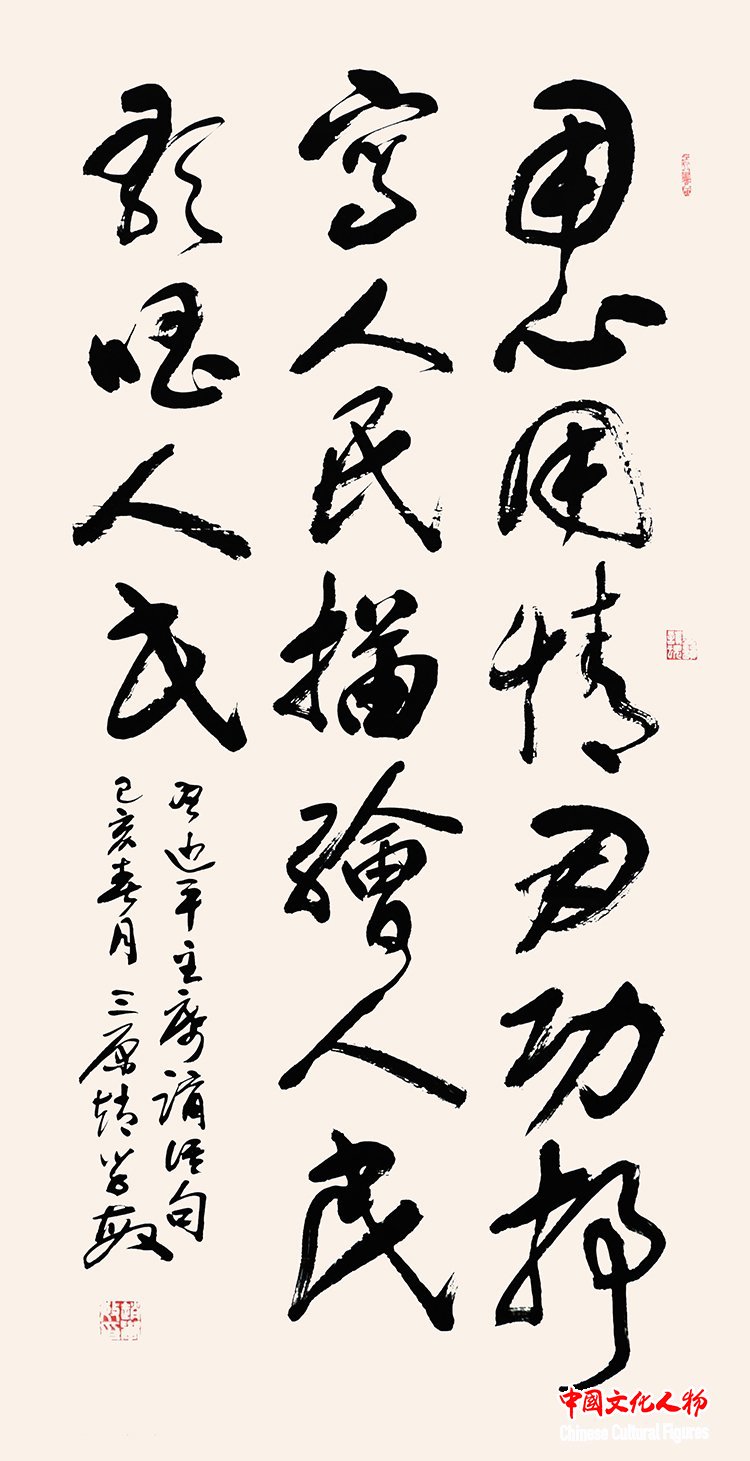 用心用情用功抒
寫人民描繪人民
歌唱人民
習近平主席講話句
己亥春月三原趙學敏
中國文化人物
Chinese Cultural Figures